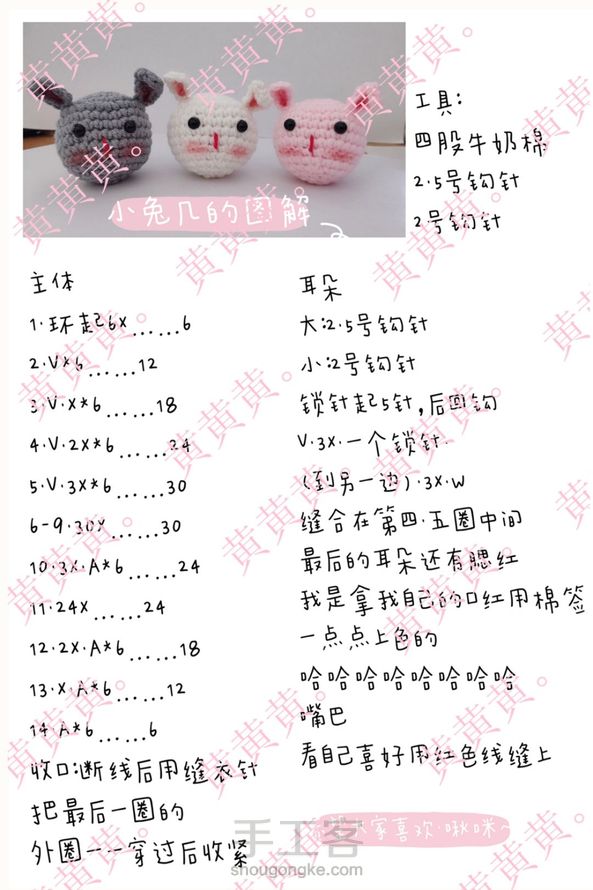 小兔几的图解
工具:
四股牛奶棉
2.5号钩针
2号钩针
主体
1.环起6x……6
2.V*6……12
3.V.X*6……18
4.V.2X*6……24
5.V.3X*6……30
6-9.30X……30
10.3X.A*6……24
11.24X……24
12.2X.A*6……18
13.X.A*6……12
14.A*6……6
收口:断线后用缝衣针
把最后一圈的
外圈一一穿过后收紧
耳朵
大:2.5号钩针
小:2号钩针
锁针起5针,后回钩
V.3X.一个锁针.
(到另一边).3X.W
缝合在第四.五圈中间
最后的耳朵还有腮红
我是拿我自己的口红用棉签
一点点上色的
哈哈哈哈哈哈哈哈
嘴巴
看自己喜好用红色线缝上
大家喜欢.啾咪~
手工客
shougongke.com
黄黄黄。